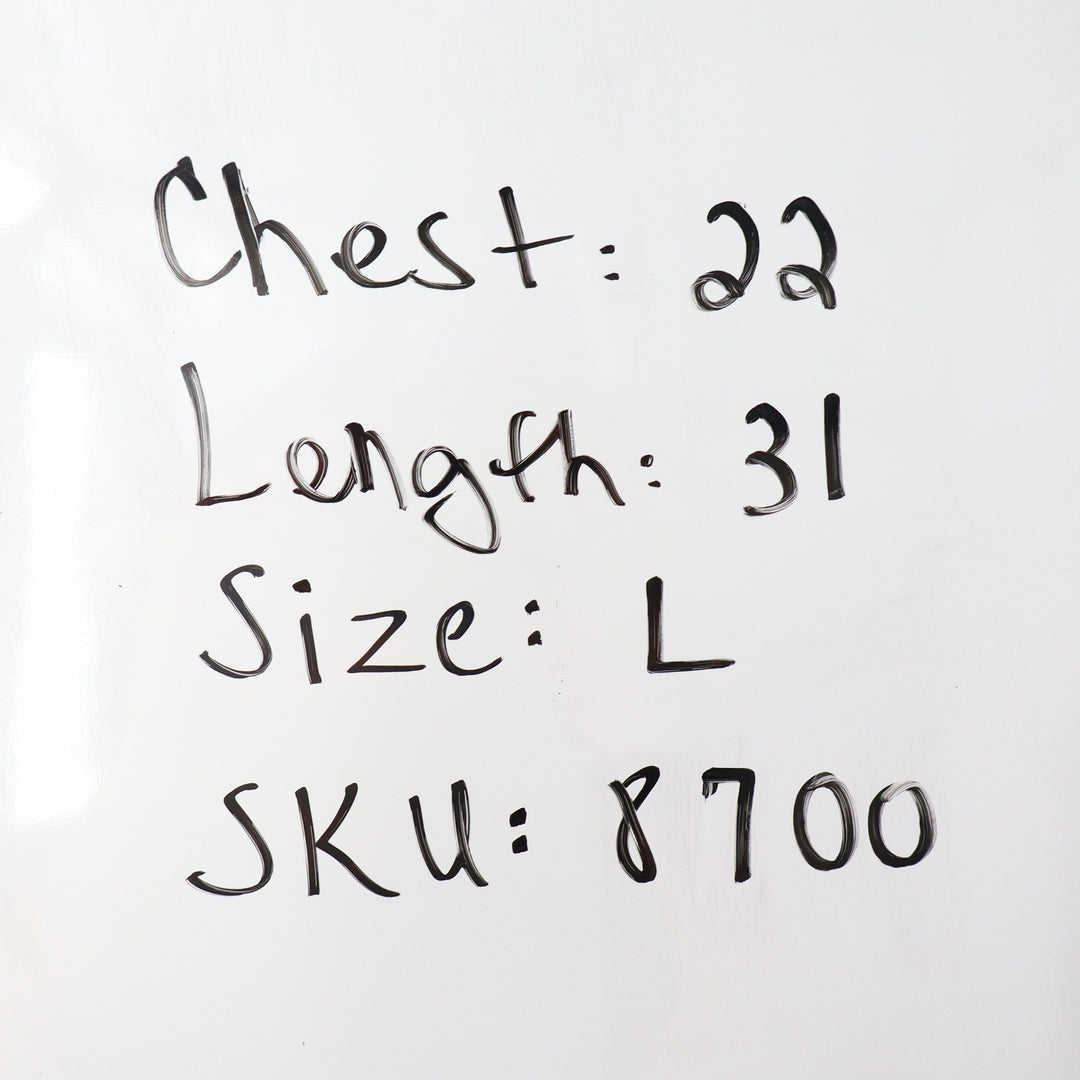 Chest: 22
Length: 31
Size: L
SKU: 8700